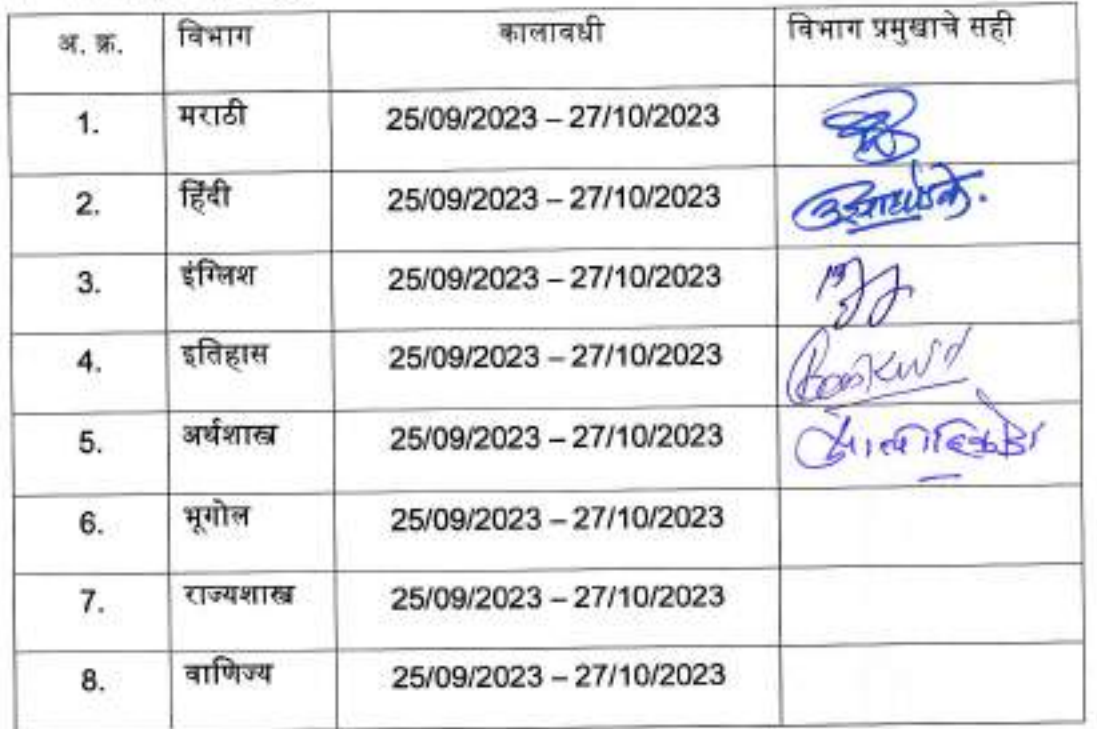 अ. क्र. विभाग कालावधी विभाग प्रमुखाचे सही
1. मराठी 25/09/2023 – 27/10/2023
2. हिंदी 25/09/2023 – 27/10/2023
3. इंग्लिश 25/09/2023 – 27/10/2023
4. इतिहास 25/09/2023 – 27/10/2023
5. अर्थशास्त्र 25/09/2023 – 27/10/2023
6. भूगोल 25/09/2023 – 27/10/2023
7. राज्यशास्त्र 25/09/2023 – 27/10/2023
8. वाणिज्य 25/09/2023 – 27/10/2023